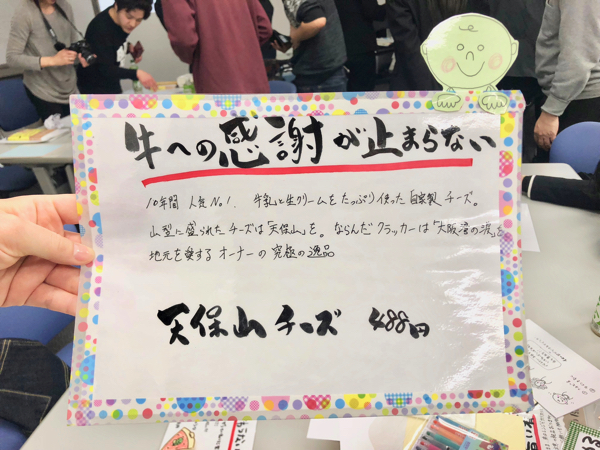 牛への感謝が止まらない
10年間 人気No1. 牛乳と生クリームをたっぷり使った自家製チーズ。
山型に盛られたチーズは「天保山」を。ならんだクラッカーは「大阪湾の波」を
地元を愛するオーナーの究極の逸品
天保山チーズ 488円